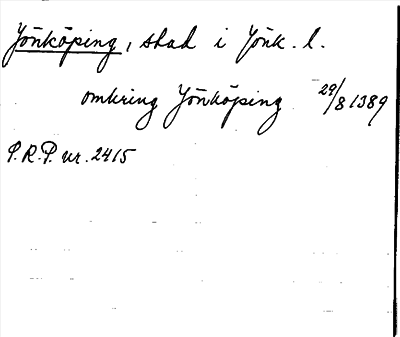 Jönköping, stad i Jönk. l.
omkring Jönköping 29/8 1389
P.R.P. nr. 2415